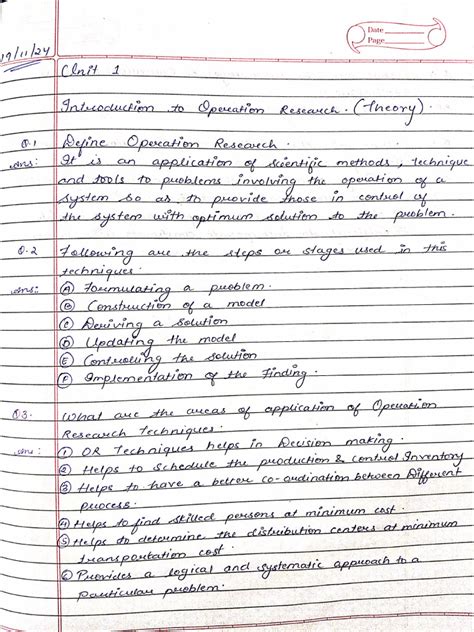 Date
Page
19/11/24
Unit 1
Introduction to Operation Research. (Theory).
Q.1 Define Operation Research.
Ans: It is an application of scientific methods, technique
and tools to problems involving the operation of a
system so as to provide those in control of
the system with optimum solution to the problem.
Q.2 Following are the steps or stages used in this
techniques.
Ans: Ⓐ Formulating a problem.
Ⓑ Construction of a model
Ⓒ Deriving a solution
Ⓓ Updating the model
Ⓔ Controlling the solution
Ⓕ Implementation of the Finding.
Q3. What are the areas of application of Operation
Research Techniques.
Ans: ① OR Techniques helps in Decision making.
② Helps to schedule the production & control Inventory
③ Helps to have a better co-ordination between Different
process.
④ Helps to find skilled persons at minimum cost.
⑤ Helps to determine the distribution centers at minimum
transportation cost.
⑥ Provides a logical and systematic approach to a
particular problem.